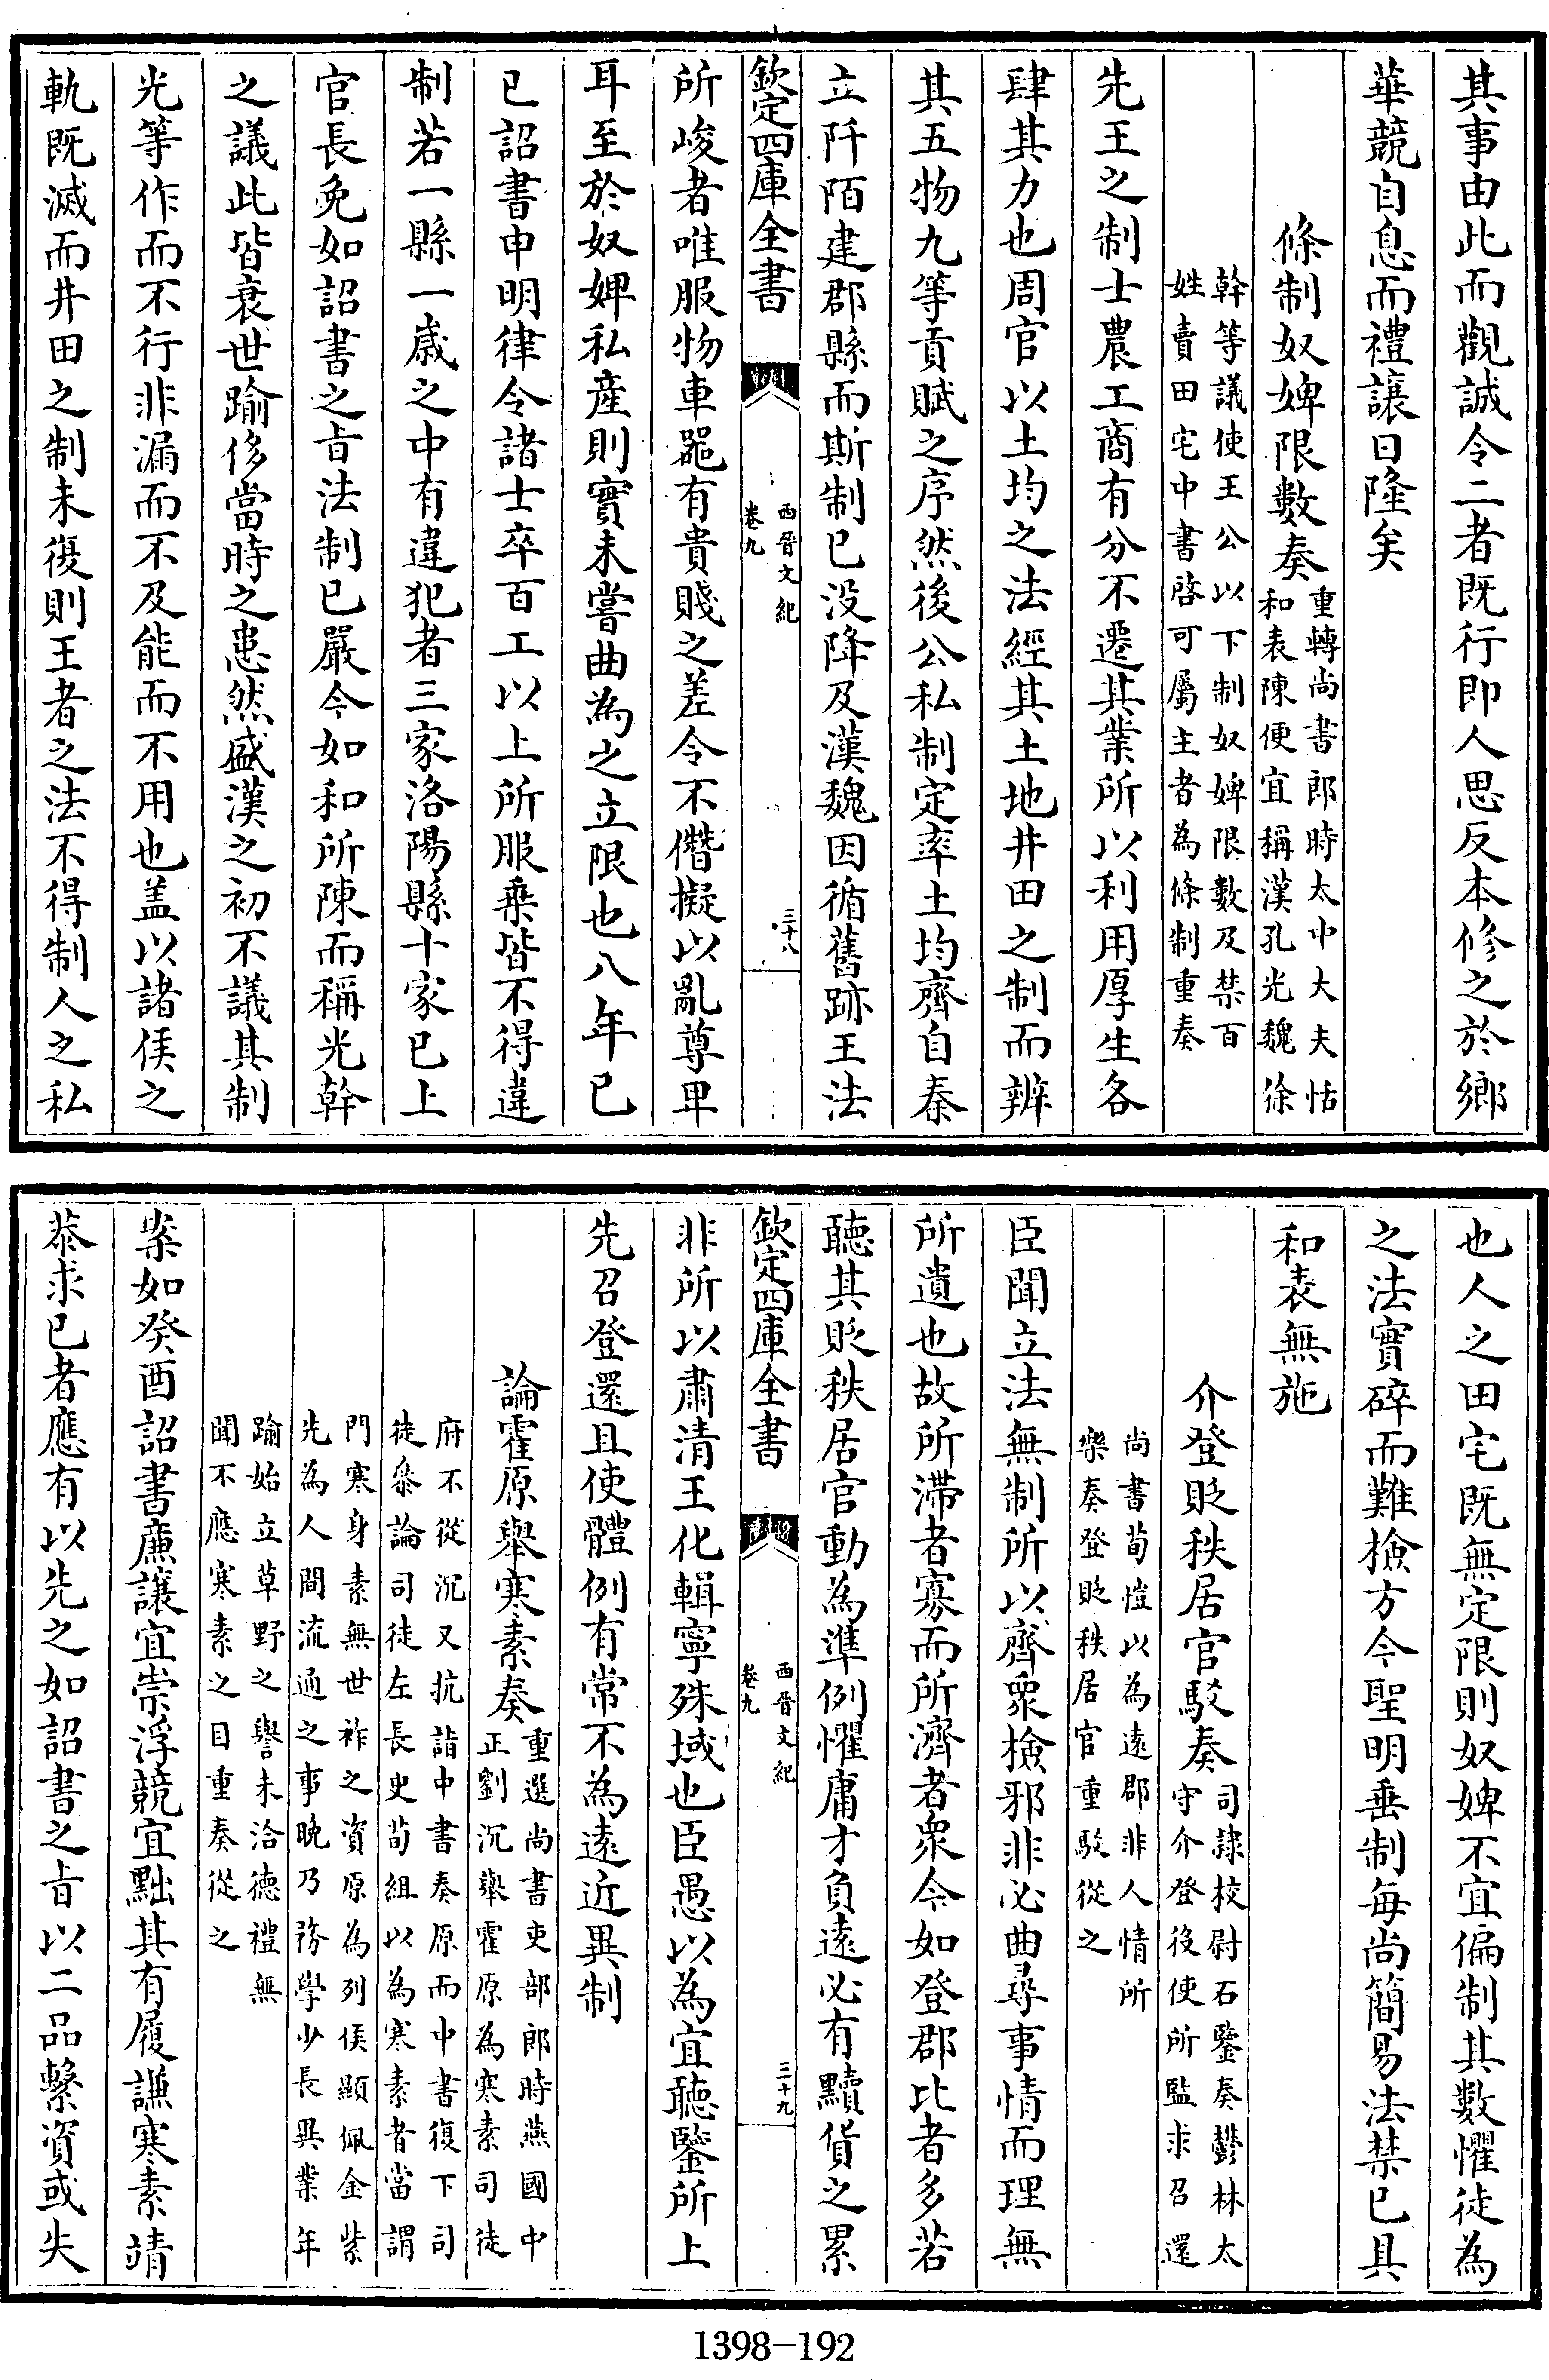 其事由此而觀誠令二者既行即人思反本修之於鄉
華競自息而禮讓日隆矣
條制奴婢限數奏重轉尚書郎時太中大夫恬
和表陳便宜稱漢孔光魏徐
幹等議使王公以下制奴婢限數及禁百
姓賣田宅中書啓可屬主者為條制重奏
先王之制士農工商有分不遷其業所以利用厚生各
肆其力也周官以土均之法經其土地井田之制而辨
其五物九等貢賦之序然後公私制定率土均齊自秦
立阡陌建郡縣而斯制已没降及漢魏因循舊跡王法
欽定四庫全書
西晉文紀
卷九
三十八
所峻者唯服物車噐有貴賤之差令不僭擬以亂尊卑
耳至於奴婢私産則實未嘗曲為之立限也八年已
已詔書申明律令諸士卒百工以上所服乗皆不得違
制若一縣一歲之中有違犯者三家洛陽縣十家已上
官長免如詔書之㫖法制已嚴今如和所陳而稱光幹
之議此皆衰世踰侈當時之患然盛漢之初不議其制
光等作而不行非漏而不及能而不用也盖以諸侯之
軌既滅而井田之制未復則王者之法不得制人之私
也人之田宅既無定限則奴婢不宜偏制其數懼徒為
之法實碎而難檢方今聖明垂制每尚簡易法禁已具
和表無施
介登貶秩居官駁奏司隸校尉石鑒奏鬱林太
守介登役使所監求召還
尚書荀愷以為遠郡非人情所
樂奏登貶秩居官重駁從之
臣聞立法無制所以齊衆檢邪非必曲尋事情而理無
所遺也故所滯者寡而所濟者衆今如登郡比者多若
聽其貶秩居官動為準例懼庸才負遠必有黷貨之累
欽定四庫全書
西晉文紀
卷九
三十九
非所以肅清王化輯寧殊域也臣愚以為宜聽鑒所上
先召登還且使體例有常不為遠近異制
論霍原舉寒素奏重選尚書吏部郎時燕國中
正劉沉舉霍原為寒素司徒
府不從沉又抗詣中書奏原而中書復下司
徒叅論司徒左長史荀組以為寒素者當謂
門寒身素無世祚之資原為列侯顯佩金紫
先為人間流通之事晚乃務學少長異業年
踰始立草野之譽未洽德禮無
聞不應寒素之目重奏從之
案如癸酉詔書亷讓宜崇浮競宜黜其有履謙寒素靖
恭求已者應有以先之如詔書之㫖以二品繫資或失
1398-192